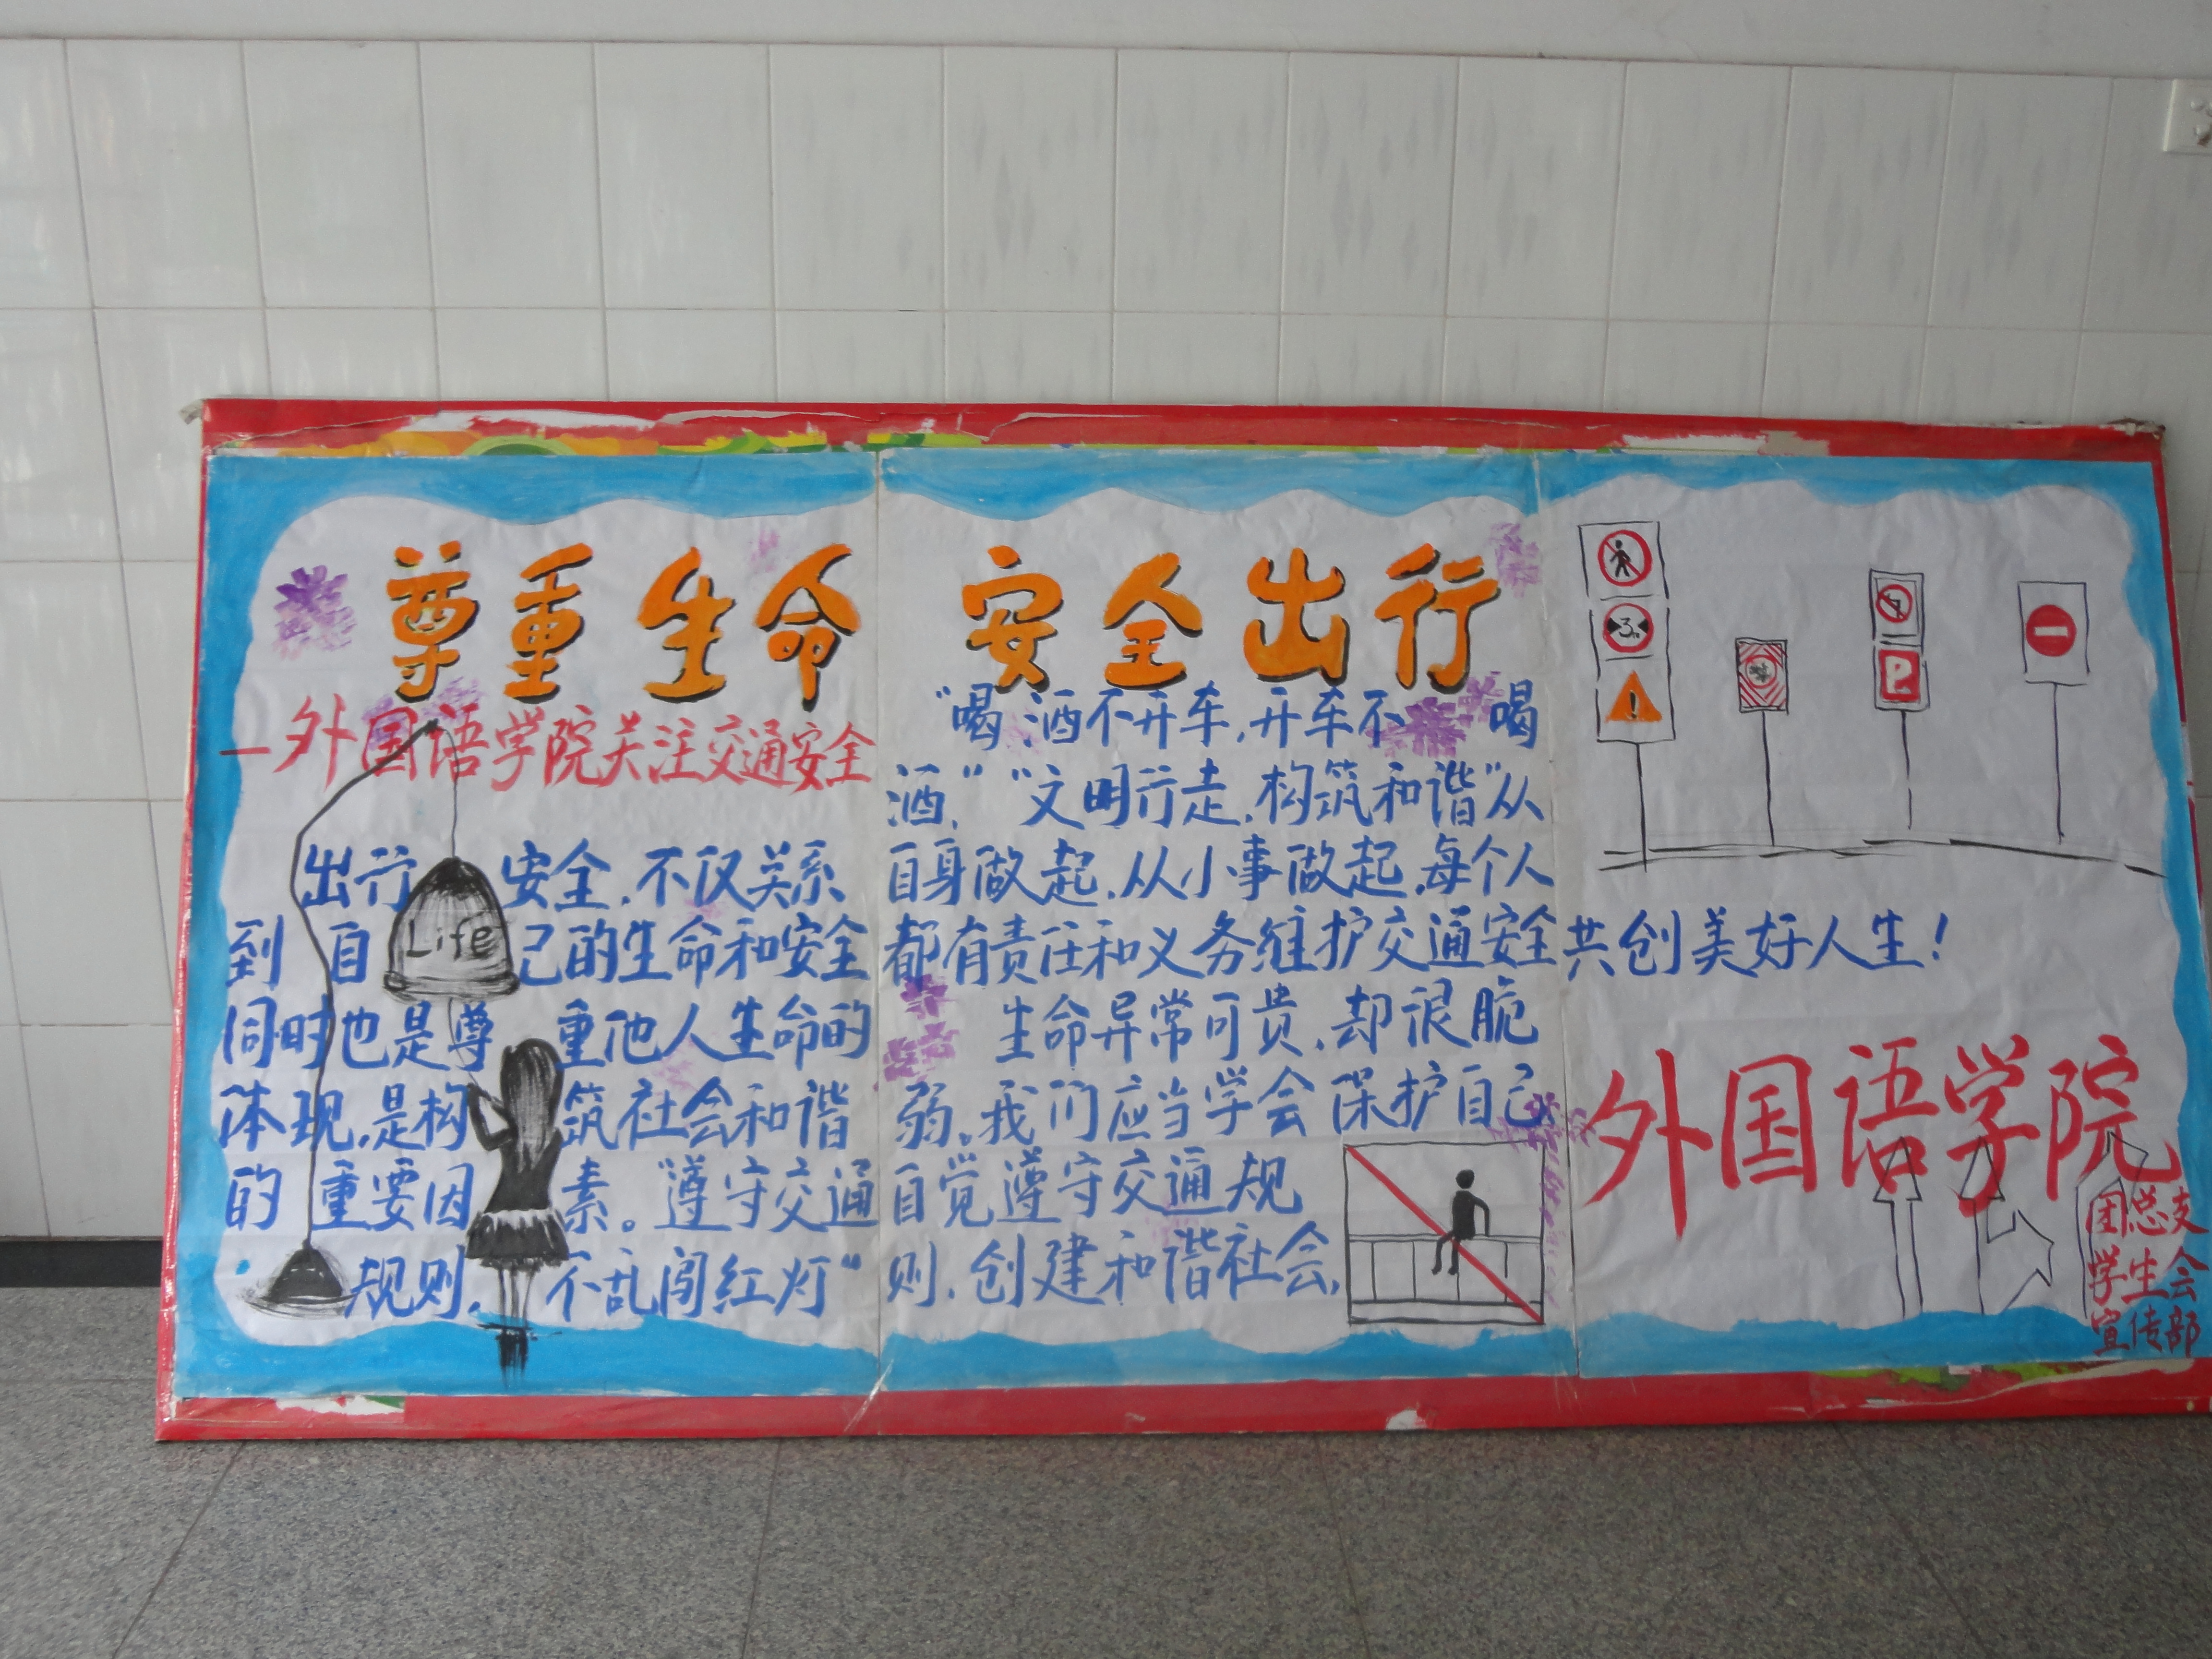 尊重生命 安全出行
—外国语学院关注交通安全
出行安全,不仅关系
到自己的生命和安全
同时也是尊重他人生命的
体现,是构筑社会和谐
的重要因素。“遵守交通
规则,不乱闯红灯”
“喝酒不开车,开车不喝
酒,”“文明行走,构筑和谐”从
自身做起,从小事做起,每个人
都有责任和义务维护交通安全共创美好人生!
生命异常可贵,却很脆
弱,我们应当学会保护自己,
自觉遵守交通规
则,创建和谐社会,
Life
3m
!
P
外国语学院
团总支
学生会
宣传部